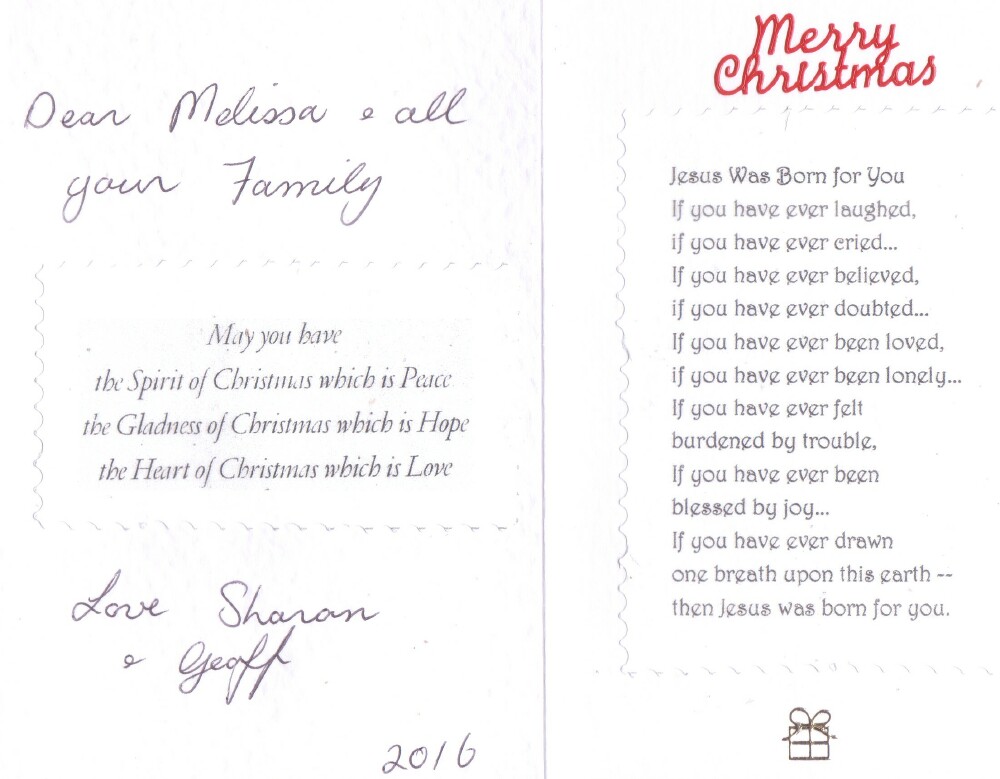 Dear Melissa & all
your Family
May you have
the Spirit of Christmas which is Peace
the Gladness of Christmas which is Hope
the Heart of Christmas which is Love
Love Sharan
& Geoff
2016
Merry
Christmas
Jesus Was Born for You
If you have ever laughed,
if you have ever cried...
If you have ever believed,
if you have ever doubted...
If you have ever been loved,
if you have ever been lonely...
If you have ever felt
burdened by trouble,
If you have ever been
blessed by joy...
If you have ever drawn
one breath upon this earth --
then Jesus was born for you.